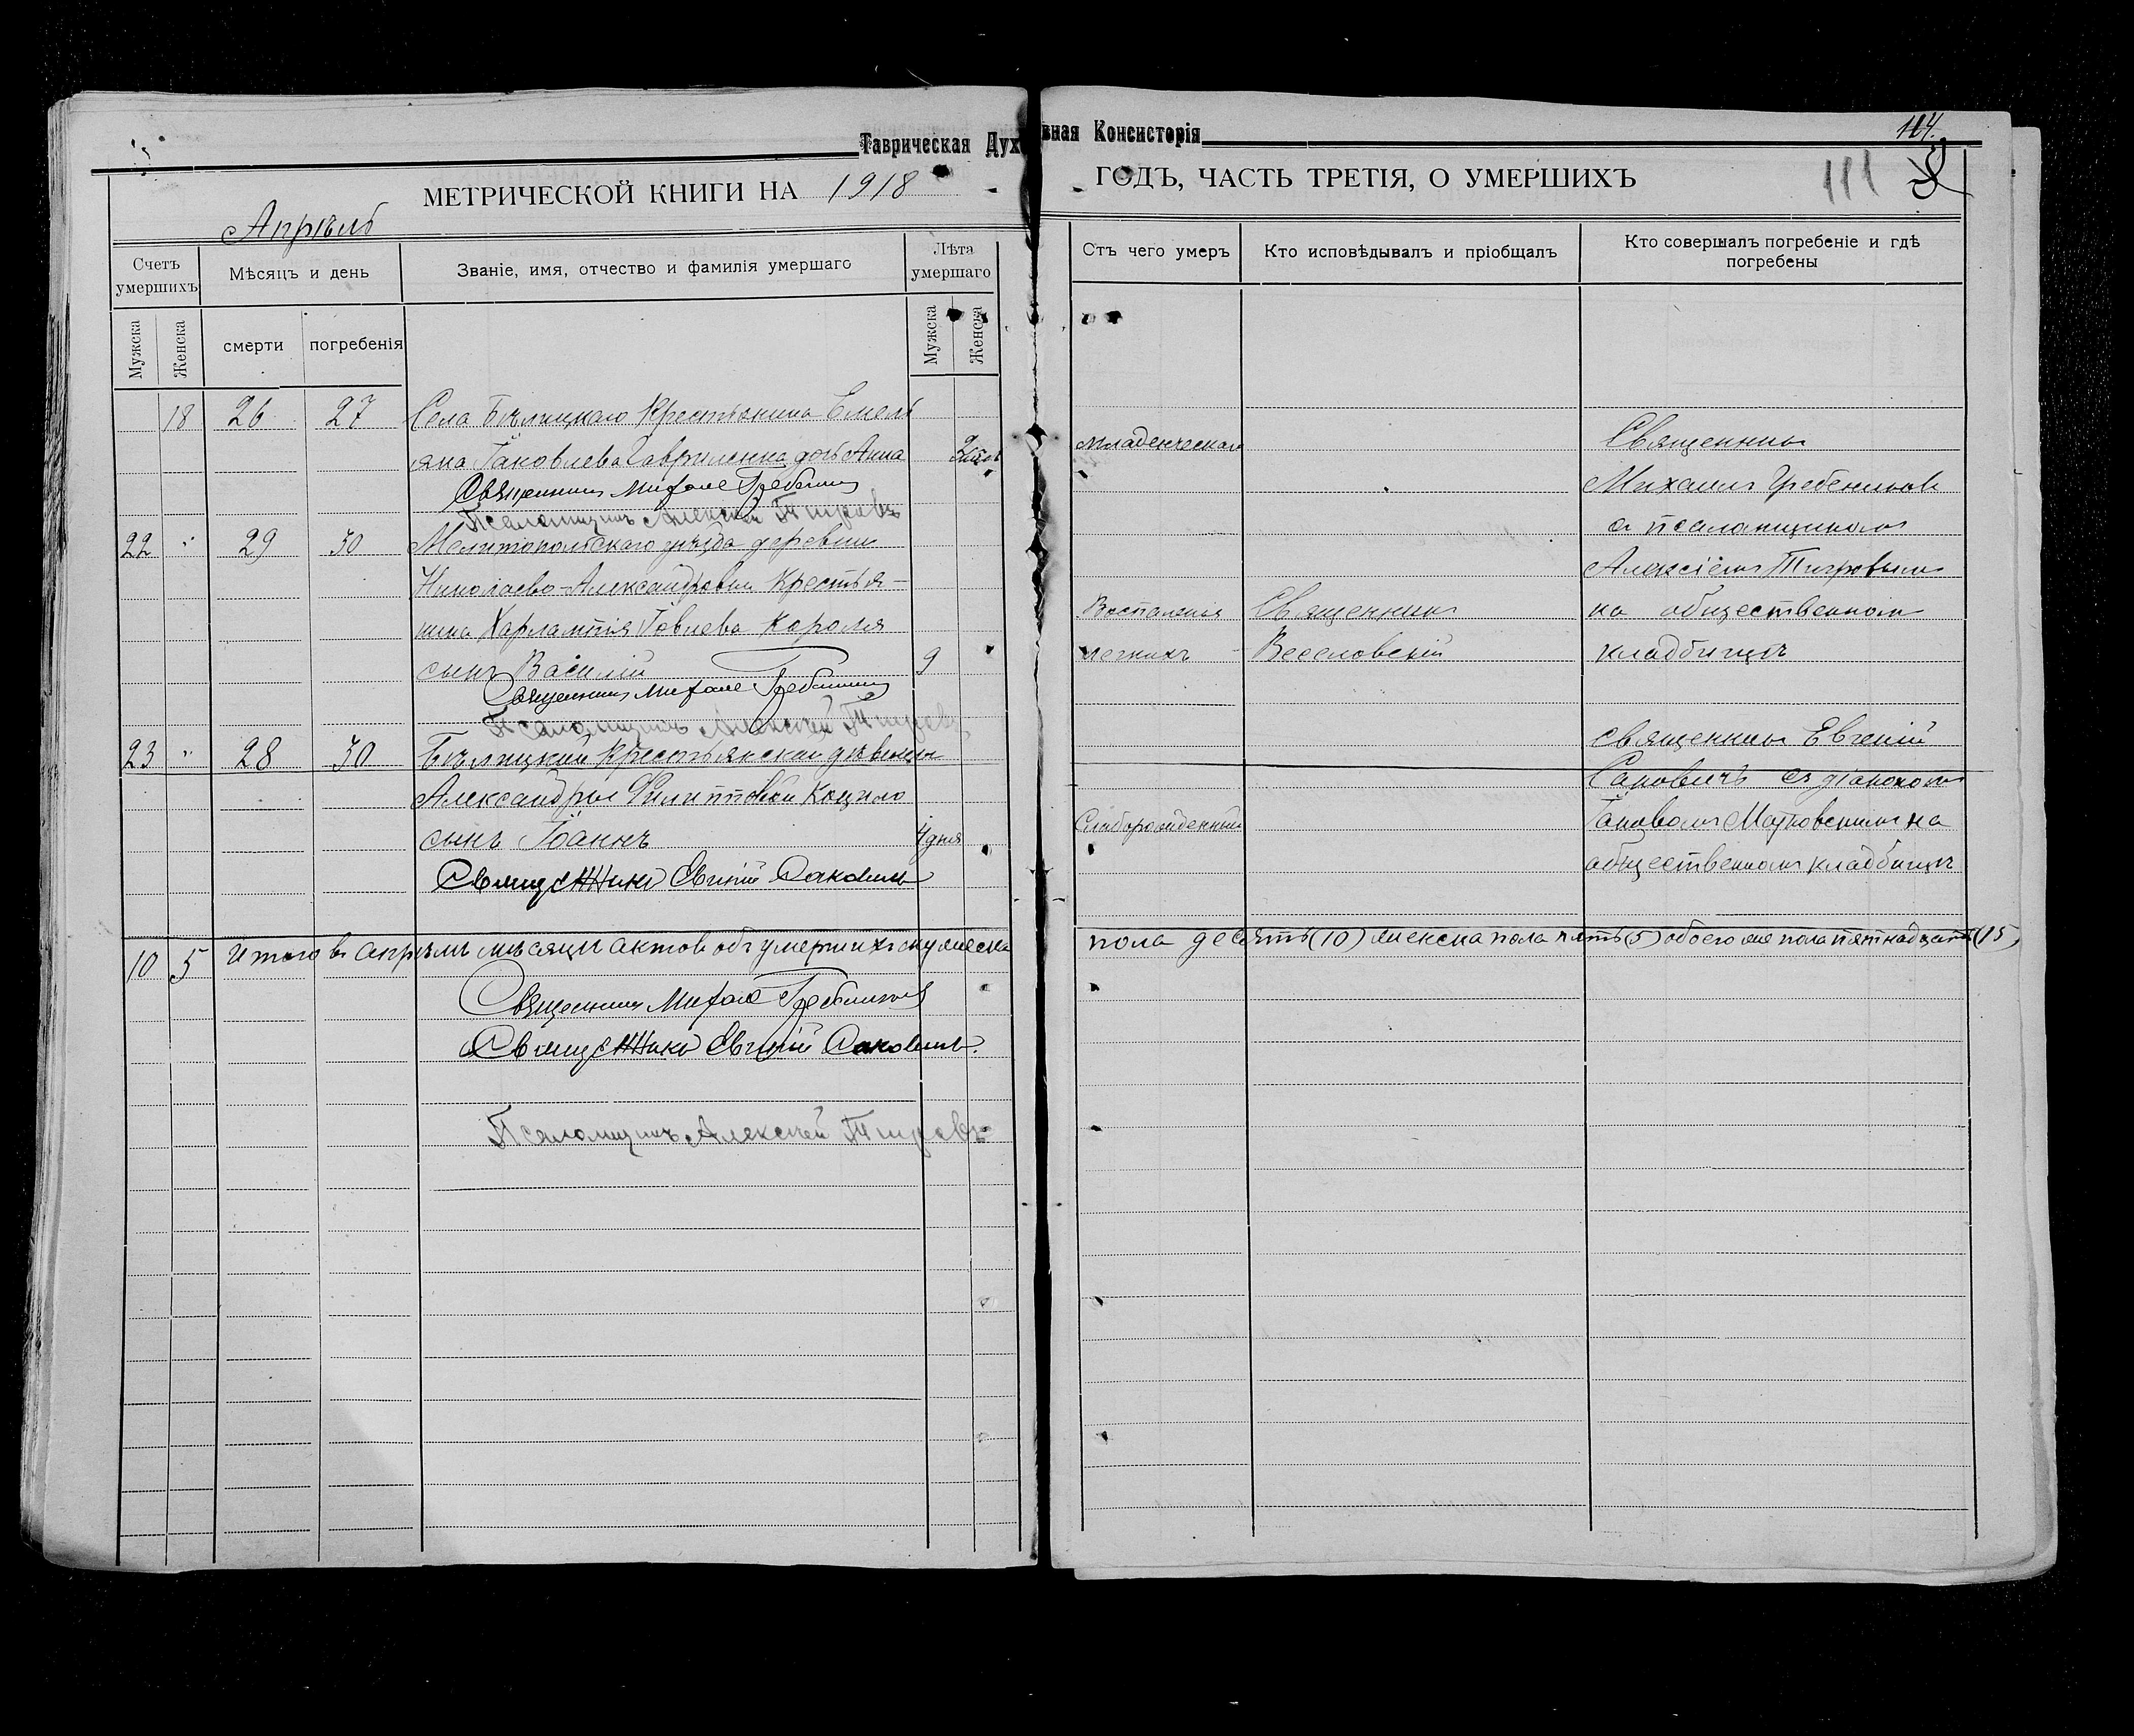 Таврическая Духовная Консисторія
114.
111
МЕТРИЧЕСКОЙ КНИГИ НА 1918 ГОДЪ, ЧАСТЬ ТРЕТІЯ, О УМЕРШИХЪ
Апрѣль
Счетъ умершихъ
Мѣсяцъ и день
Званіе, имя, отчество и фамилія умершаго
Лѣта умершаго
Отъ чего умеръ
Кто исповѣдывалъ и пріобщалъ
Кто совершалъ погребеніе и гдѣ погребены
Мужска
Женска
смерти
погребенія
Мужска
Женска
18 26 27 Села Бѣлицкаго Крестьянина Емель
яна Іаковлева Гавриленка дочь Анна
Младенческая
Священникъ
Священникъ Михаилъ Гребенниковъ
Михаилъ Гребенников
Псаломщикъ Алексей Тигровъ
съ псаломщикомъ
22 " 29 30 Мелитопольскаго уѣзда деревни
Николаево-Александровки Крестья-
Алексіемъ Тигровымъ
нина Харлампія Іовлева Короля
Воспаленія
Священникъ
на общественномъ
сынъ Василій 9
легкихъ
Веселовскій
кладбищѣ
Священникъ Михаилъ Гребенниковъ
Псаломщикъ Алексей Тигровъ
священникъ Евгеній
23 " 28 30 Бѣлицкой крестьянской дѣвицы
Саковичъ съ діакономъ
Александры Филипповой Коцило
сынъ Іоаннъ 4 дня
Слаборожденный
Іаковомъ Матковскимъ на
общественномъ кладбищѣ
Священникъ Евгеній Саковичъ
10 5 Итого въ апрѣлѣ мѣсяцѣ актовъ объ умершихъ мужеска пола десять (10) женска пола пять (5) обоего же пола пятнадцать (15)
Священникъ Михаилъ Гребенниковъ
Священникъ Евгеній Саковичъ.
Псаломщикъ Алексей Тигровъ